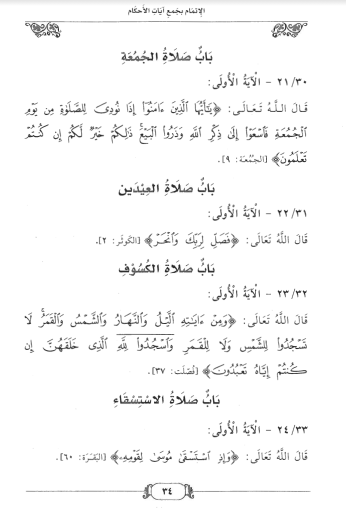 الإلمام بجمع آيات الأحكام
بَابُ صَلَاةِ الجُمُعَةِ
٢١/٣٠ - الْآيَةُ الْأُولَى:
قَالَ اللَّهُ تَعَالَى: ﴿يَٰٓأَيُّهَا الَّذِينَ ءَامَنُوٓا۟ إِذَا نُودِيَ لِلصَّلَوٰةِ مِن يَوْمِ
الْجُمُعَةِ فَاسْعَوْا۟ إِلَىٰ ذِكْرِ اللَّهِ وَذَرُوا۟ الْبَيْعَ ۚ ذَٰلِكُمْ خَيْرٌ لَّكُمْ إِن كُنتُمْ
تَعْلَمُونَ﴾ [الجُمُعَة: ٩].
بَابُ صَلَاةِ العِيْدَين
٢٢/٣١ - الْآيَةُ الْأُولَى:
قَالَ اللَّهُ تَعَالَى: ﴿فَصَلِّ لِرَبِّكَ وَانْحَرْ﴾ [الكَوْثَر: ٢].
بَابُ صَلَاةِ الكُسُوْفِ
٢٣/٣٢ - الْآيَةُ الْأُولَى:
قَالَ اللَّهُ تَعَالَى: ﴿وَمِنْ ءَايَٰتِهِ الَّيْلُ وَالنَّهَارُ وَالشَّمْسُ وَالْقَمَرُ ۚ لَا
تَسْجُدُوا۟ لِلشَّمْسِ وَلَا لِلْقَمَرِ وَاسْجُدُوا۟ لِلَّهِ الَّذِى خَلَقَهُنَّ إِن
كُنتُمْ إِيَّاهُ تَعْبُدُونَ﴾ [فُصِّلَت: ٣٧].
بَابُ صَلَاةِ الاسْتِسْقَاءِ
٢٤/٣٣ - الْآيَةُ الْأُولَى:
قَالَ اللَّهُ تَعَالَى: ﴿وَإِذِ اسْتَسْقَىٰ مُوسَىٰ لِقَوْمِهِ﴾ [البَقَرَة: ٦٠].
٣٤